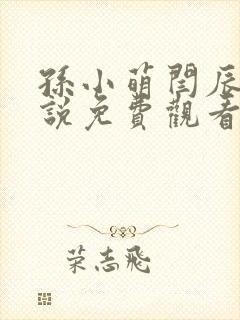 孫小萌閆辰
說免費觀看
荣志飛